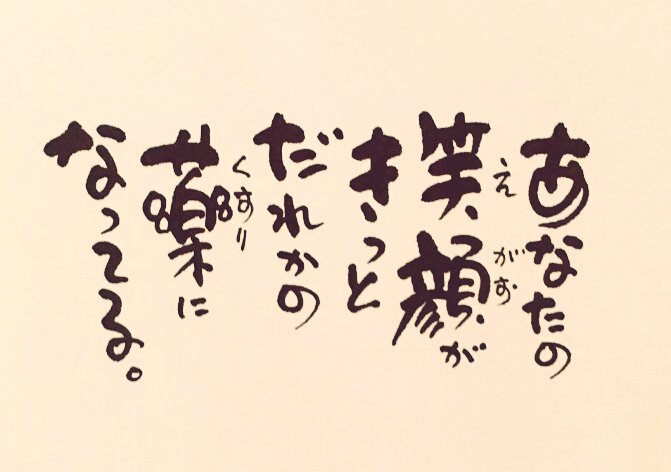 あなたの
笑顔が
えがお
きっと
だれかの
薬に
くすり
なってる。